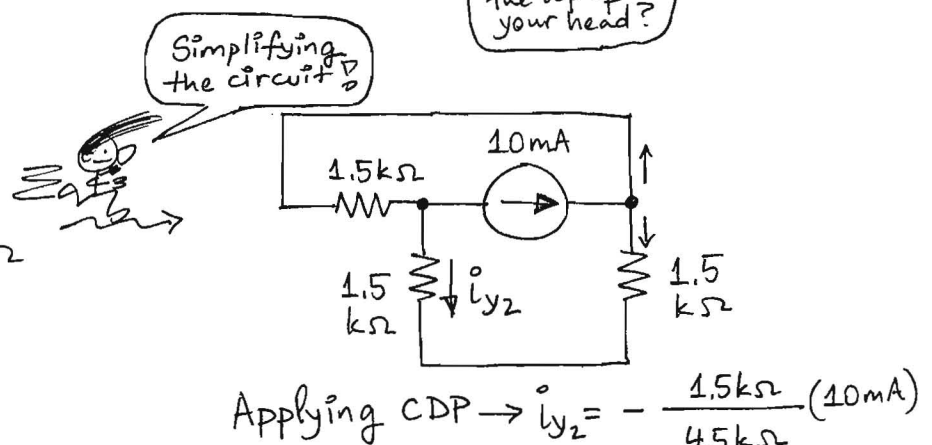 your head?
Simplifying
the circuit!
10mA
1.5kΩ
1.5
kΩ
iy2
1.5
kΩ
Ω
Applying CDP → iy2 = - 1.5kΩ/4.5kΩ (10mA)